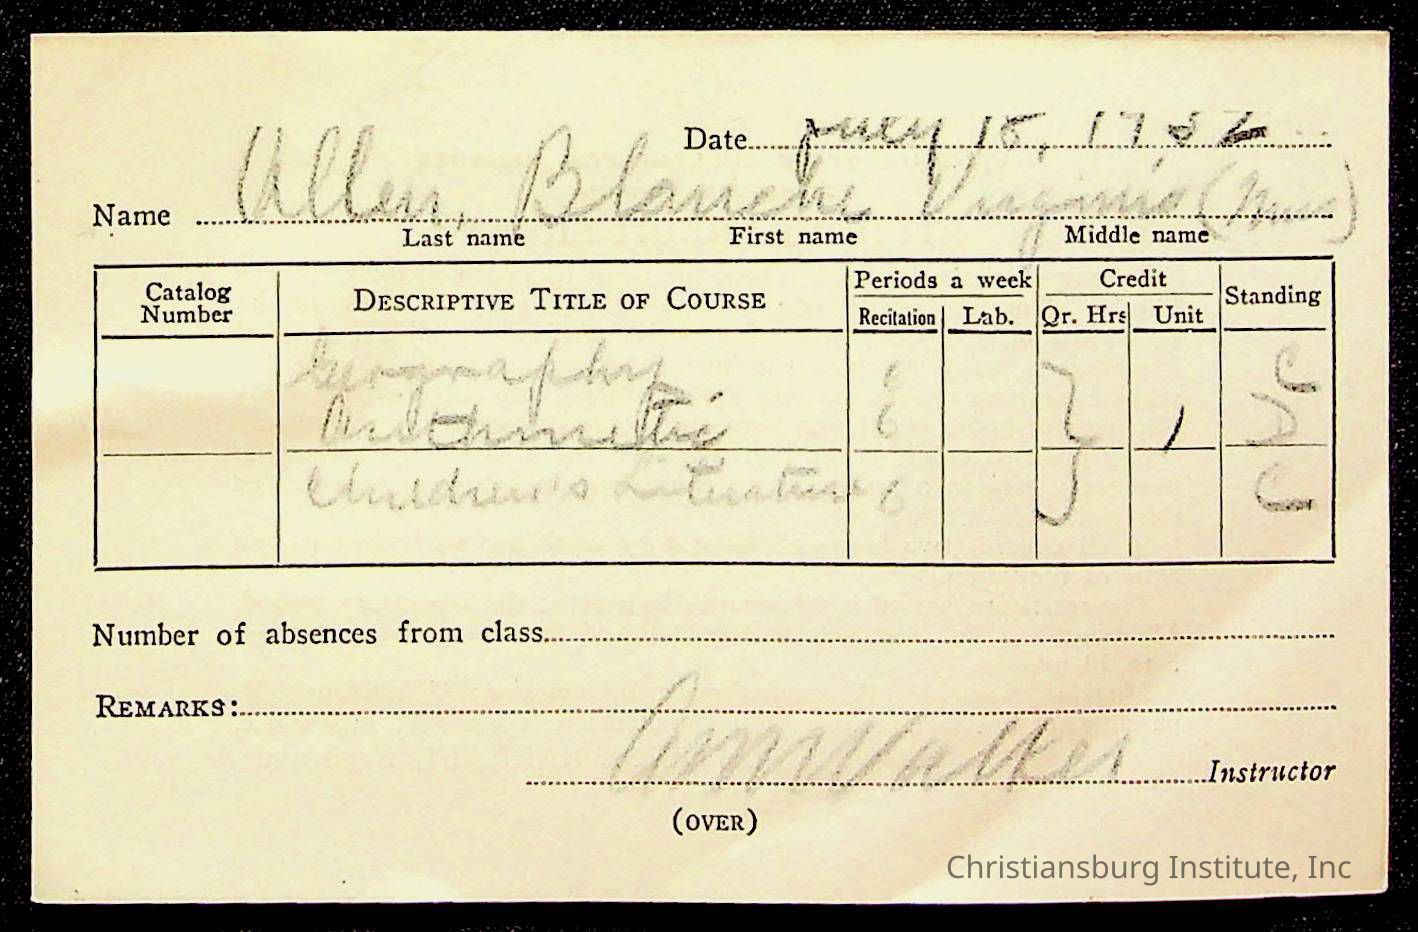 Date July 18, 1932
Name Allen, Blanche Virginia (Miss)
Last name First name Middle name
Catalog Number DESCRIPTIVE TITLE OF COURSE Periods a week Credit Standing
Recitation Lab. Qr. Hrs Unit
Geography 6 C
Arithmetic 6 1 D
Children's Literature 6 C
Number of absences from class
REMARKS:
Walker Instructor
(OVER)
Christiansburg Institute, Inc